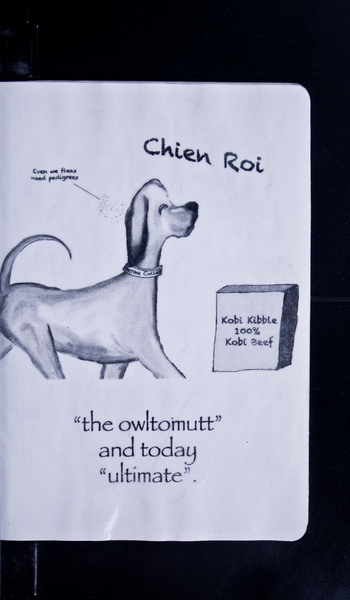 Chien Roi
Even we fleas
need pedigrees
Collar
Kobi Kibble
100%
Kobi Beef
“the owltomutt”
and today
“ultimate”.